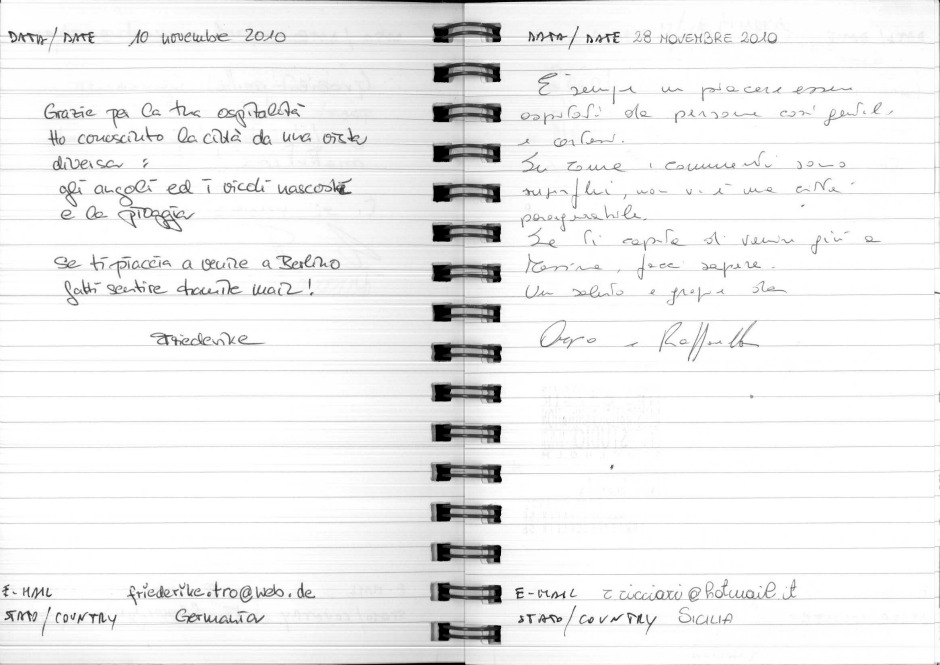 DATA/DATE 10 novembre 2010
Grazie per la tua ospitalità
Ho conosciuto la città da una vista
diversa :
gli angoli ed i vicoli nascosti
e la pioggia
Se ti piaccia a venire a Berlino
fatti sentire tramite mail!
Friederike
E-MAIL friederike.tro@web.de
STATO/COUNTRY Germania
DATA/DATE 28 NOVEMBRE 2010
È sempre un piacere essere
ospitati da persone così gentili
e cortesi.
Su Roma i commenti sono
superflui, non vi è una città
paragonabile.
Se ti capita di venire giù a
Messina, facci sapere.
Un saluto e grazie da
e Raffaella
E-MAIL cicciari@hotmail.it
STATO/COUNTRY SICILIA